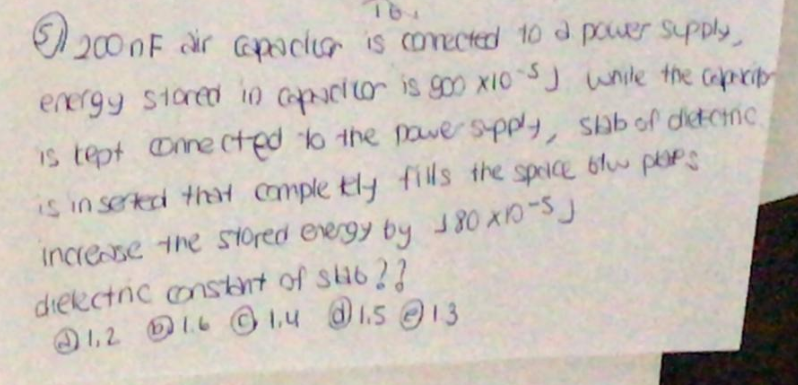 ⑤ 200 nF air capacitor is connected to a power supply,
energy stored in capacitor is 900 x10⁻⁵ J while the capacitor
is kept connected to the power supply, slab of dielectric
is inserted that completely fills the space b/w plates
increase the stored energy by 180 x10⁻⁵ J
dielectric constant of slab??
ⓐ 1,2 ⓑ 1.6 ⓒ 1,4 ⓓ 1.5 ⓔ 1 3